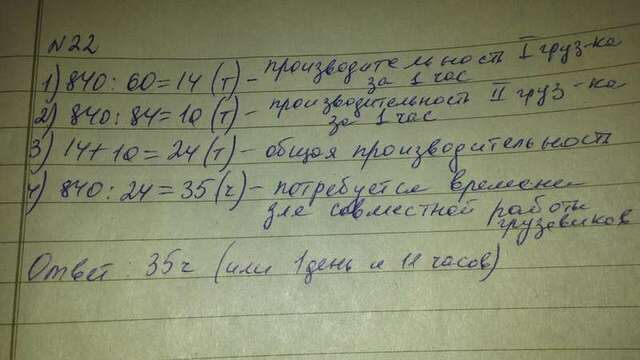 N22
1) 840 : 60 = 14 (т) - производительность I груз-ка
за 1 час
2) 840 : 84 = 10 (т) - производительность II груз-ка
за 1 час
3) 14 + 10 = 24 (т) - общая производительность
4) 840 : 24 = 35 (ч) - потребуется времени
для совместной работы
грузовиков
Ответ: 35 ч (или 1 день и 11 часов)